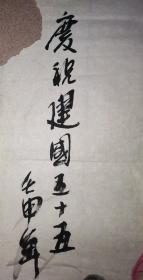 慶祝建國五十五
壬申年